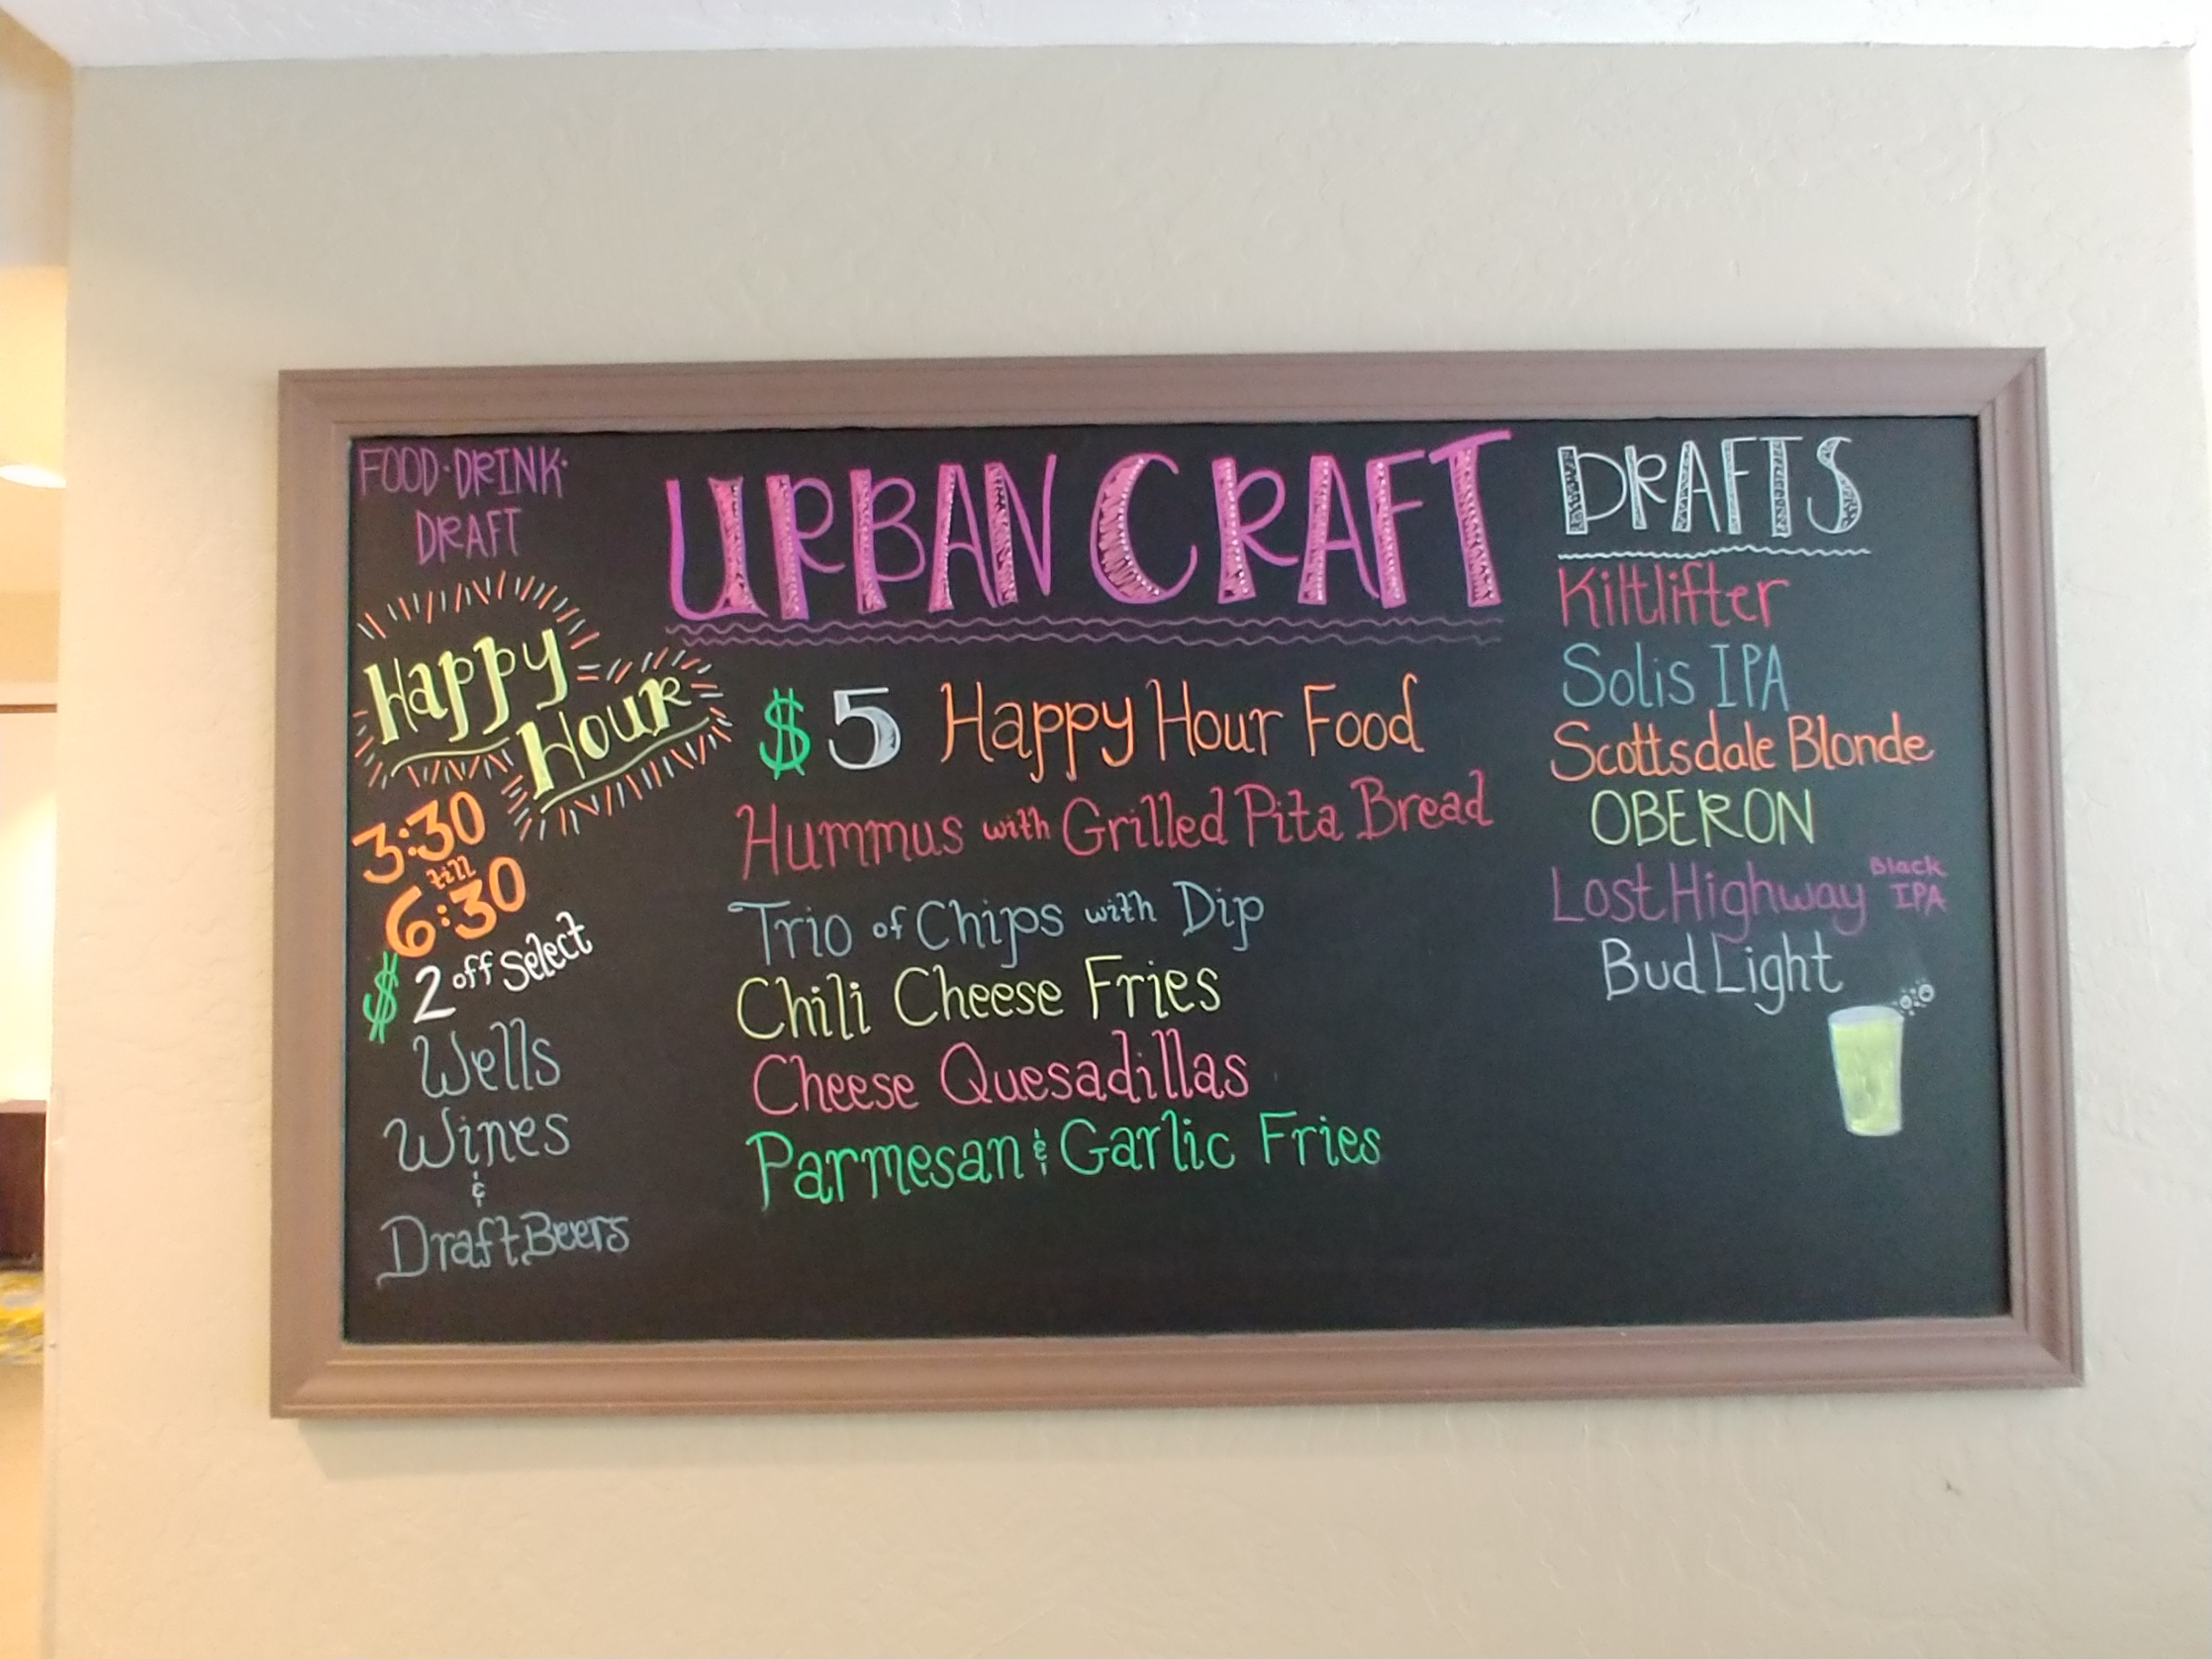 FOOD·DRINK·
DRAFT
Happy
Hour
3:30
till
6:30
$2 off Select
Wells
Wines
&
Draft Beers
URBAN CRAFT
$5 Happy Hour Food
Hummus with Grilled Pita Bread
Trio of Chips with Dip
Chili Cheese Fries
Cheese Quesadillas
Parmesan & Garlic Fries
DRAFTS
Kiltlifter
Solis IPA
Scottsdale Blonde
OBERON
Lost Highway Black IPA
Bud Light